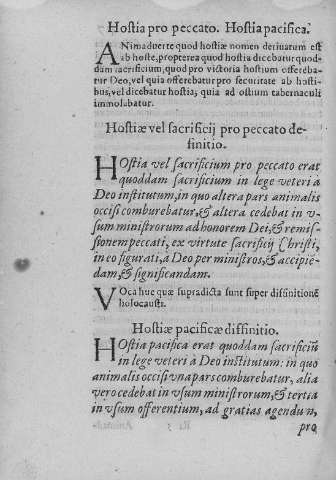 Hostia pro peccato. Hostia pacifica.
ANimaduerte quod hostiæ nomen deriuatum est
ab hoste, propterea quod hostia dicebatur quod-
dam sacrificium, quod pro victoria hostium offereba-
tur Deo, vel quia offerebatur pro securitate ab hosti-
bus, vel dicebatur hostia, quia ad ostium tabernaculi
immolabatur.
Hostiæ vel sacrificij pro peccato de-
finitio.
HOstia vel sacrificium pro peccato erat
quoddam sacrificium in lege veteri à
Deo institutum, in quo altera pars animalis
occisi comburebatur, & altera cedebat in v-
sum ministrorum ad honorem Dei, & remis-
sionem peccati, ex virtute sacrificij Christi,
in eo figurati, à Deo per ministros, & accipie-
dam, & significandam.
VOca huc quæ supradicta sunt super diffinitionē
holocausti.
Hostiæ pacificæ diffinitio.
HOstia pacifica erat quoddam sacrificiū
in lege veteri à Deo institutum: in quo
animalis occisi vna pars comburebatur, alia
vero cedebat in vsum ministrorum, & tertia
in vsum offerentium, ad gratias agendum,
pro